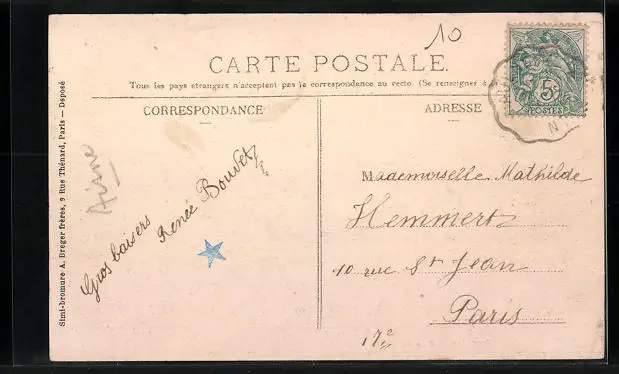 10
CARTE POSTALE.
Tous les pays étrangers n'acceptent pas la correspondance au recto. (Se renseigner à
CORRESPONDANCE
ADRESSE
5c
POSTES
Simi-bromure A. Breger frères, 9 Rue Thénard, Paris — Déposé
Aisne
Gros baisers
Renée Bouvet
Mademoiselle Mathilde
Hemmertz
10 rue St Jean
Paris
17e